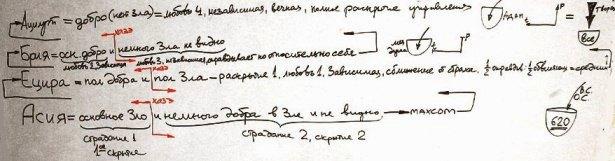 Ацилут = добро (нет зла) = любовь 4, независимая, вечная, полное раскрытие управления
хазэ
Брия = осн. добро и немного зла, не видно
любовь 3, независимая, оправдывает относительно себя
хазэ
Ецира = пол добра и пол зла - раскрытие 1, любовь 1, зависимая, сближение от страха. 1/2 оправд. 1/2 обвиняющ = средний
хазэ
Асия = основное зло и немного добра в зле и не видно → махсом
страдание 1 страдание 2, скрытие 2
1ое скрытие
все
620